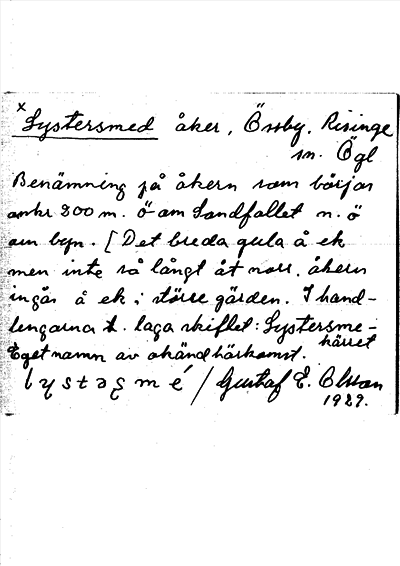 x
Lystersmed åker, Örsby, Risinge
sn. Ögl
Benämning på åkern som börjar
omkr 200 m. ö om Sandfallet n. ö
om byn. [Det breda gula å ek
men inte så långt åt norr. åkern
ingår å ek i större gärden. I hand-
lingarna t. laga skiftet: Lystersme-
kärret
Eget namn av okänd härkomst.
lystəşmé / Gustaf E. Olsson
1929.